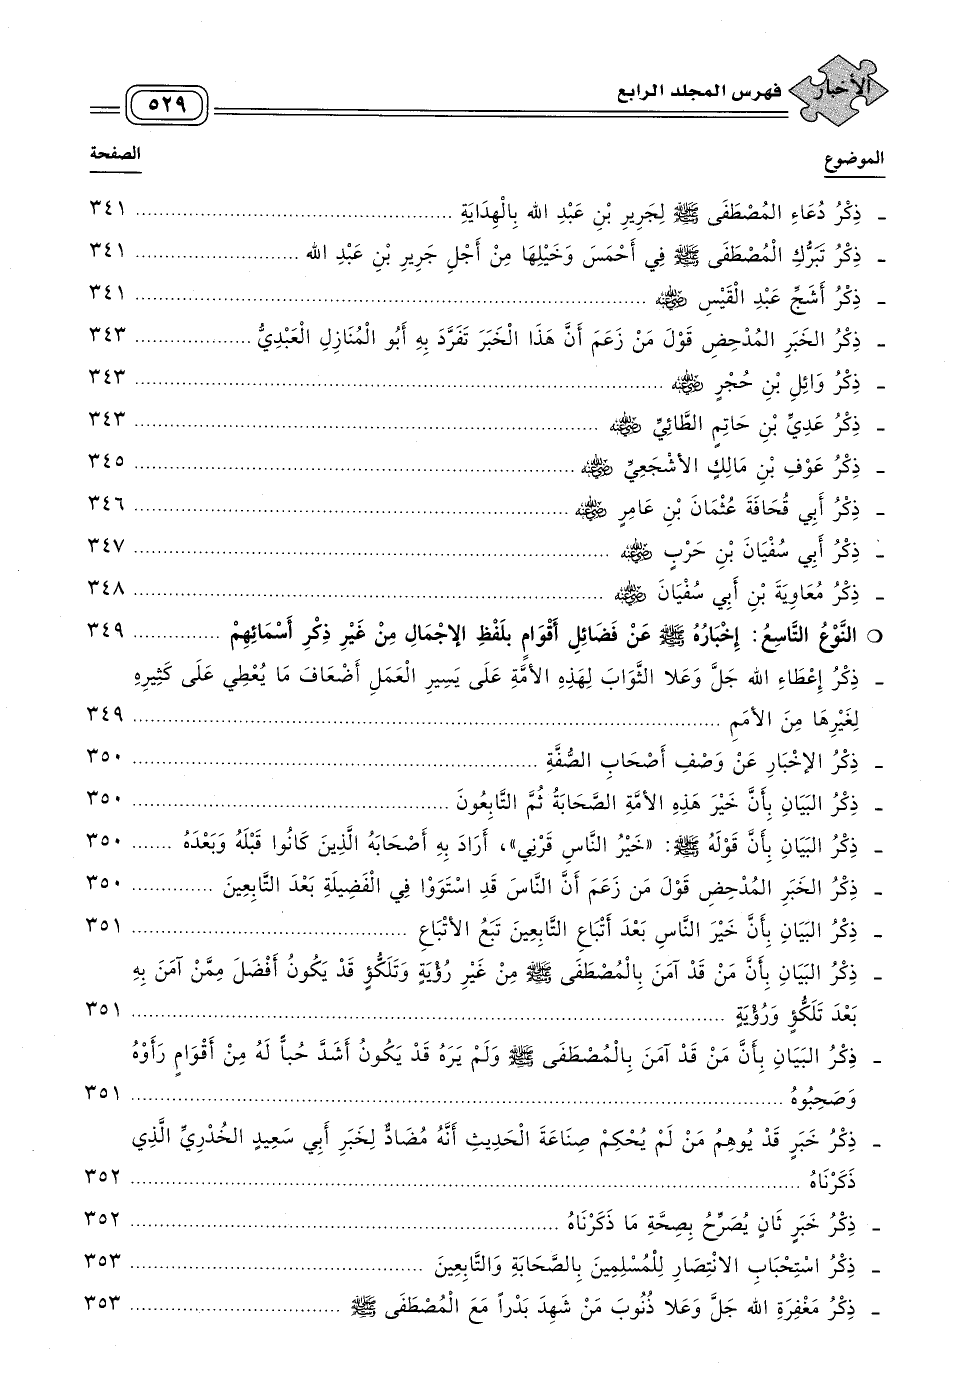 الأخبار
فهرس المجلد الرابع
٥٢٩
الموضوع
الصفحة
- ذِكْرُ دُعَاءِ المُصْطَفَى ﷺ لِجَرِيرِ بْنِ عَبْدِ الله بِالْهِدَايَةِ ........ ٣٤١
- ذِكْرُ تَبَرُّكِ الْمُصْطَفَى ﷺ فِي أَحْمَسَ وَخَيْلِهَا مِنْ أَجْلِ جَرِيرِ بْنِ عَبْدِ الله ........ ٣٤١
- ذِكْرُ أَشَجِّ عَبْدِ الْقَيْسِ رضي الله عنه ........ ٣٤١
- ذِكْرُ الخَبَرِ المُدْحِضِ قَوْلَ مَنْ زَعَمَ أَنَّ هَذَا الْخَبَرَ تَفَرَّدَ بِهِ أَبُو الْمُنَازِلِ الْعَبْدِيُّ ........ ٣٤٣
- ذِكْرُ وَائِلِ بْنِ حُجْرٍ رضي الله عنه ........ ٣٤٣
- ذِكْرُ عَدِيِّ بْنِ حَاتِمٍ الطَّائِيِّ رضي الله عنه ........ ٣٤٣
- ذِكْرُ عَوْفِ بْنِ مَالِكٍ الأَشْجَعِيِّ رضي الله عنه ........ ٣٤٥
- ذِكْرُ أَبِي قُحَافَةَ عُثْمَانَ بْنِ عَامِرٍ رضي الله عنه ........ ٣٤٦
- ذِكْرُ أَبِي سُفْيَانَ بْنِ حَرْبٍ رضي الله عنه ........ ٣٤٧
- ذِكْرُ مُعَاوِيَةَ بْنِ أَبِي سُفْيَانَ رضي الله عنه ........ ٣٤٨
○ النَّوْعُ التَّاسِعُ: إِخْبَارُهُ ﷺ عَنْ فَضَائِلِ أَقْوَامٍ بِلَفْظِ الإِجْمَالِ مِنْ غَيْرِ ذِكْرِ أَسْمَائِهِمْ ........ ٣٤٩
- ذِكْرُ إِعْطَاءِ الله جَلَّ وَعَلا الثَّوَابَ لِهَذِهِ الأُمَّةِ عَلَى يَسِيرِ الْعَمَلِ أَضْعَافَ مَا يُعْطِي عَلَى كَثِيرِهِ
لِغَيْرِهَا مِنَ الأُمَمِ ........ ٣٤٩
- ذِكْرُ الإِخْبَارِ عَنْ وَصْفِ أَصْحَابِ الصُّفَّةِ ........ ٣٥٠
- ذِكْرُ البَيَانِ بِأَنَّ خَيْرَ هَذِهِ الأُمَّةِ الصَّحَابَةُ ثُمَّ التَّابِعُونَ ........ ٣٥٠
- ذِكْرُ البَيَانِ بِأَنَّ قَوْلَهُ ﷺ: «خَيْرُ النَّاسِ قَرْنِي»، أَرَادَ بِهِ أَصْحَابَهُ الَّذِينَ كَانُوا قَبْلَهُ وَبَعْدَهُ ........ ٣٥٠
- ذِكْرُ الخَبَرِ المُدْحِضِ قَوْلَ مَن زَعَمَ أَنَّ النَّاسَ قَدِ اسْتَوَوْا فِي الْفَضِيلَةِ بَعْدَ التَّابِعِينَ ........ ٣٥٠
- ذِكْرُ البَيَانِ بِأَنَّ خَيْرَ النَّاسِ بَعْدَ أَتْبَاعِ التَّابِعِينَ تَبَعُ الأَتْبَاعِ ........ ٣٥١
- ذِكْرُ البَيَانِ بِأَنَّ مَنْ قَدْ آمَنَ بِالْمُصْطَفَى ﷺ مِنْ غَيْرِ رُؤْيَةٍ وَتَلَكُّؤٍ قَدْ يَكُونُ أَفْضَلَ مِمَّنْ آمَنَ بِهِ
بَعْدَ تَلَكُّؤٍ وَرُؤْيَةٍ ........ ٣٥١
- ذِكْرُ البَيَانِ بِأَنَّ مَنْ قَدْ آمَنَ بِالْمُصْطَفَى ﷺ وَلَمْ يَرَهُ قَدْ يَكُونُ أَشَدَّ حُبّاً لَهُ مِنْ أَقْوَامٍ رَأَوْهُ
وَصَحِبُوهُ ........ ٣٥١
- ذِكْرُ خَبَرٍ قَدْ يُوهِمُ مَنْ لَمْ يُحْكِمْ صِنَاعَةَ الْحَدِيثِ أَنَّهُ مُضَادٌّ لِخَبَرِ أَبِي سَعِيدٍ الخُدْرِيِّ الَّذِي
ذَكَرْنَاهُ ........ ٣٥٢
- ذِكْرُ خَبَرٍ ثَانٍ يُصَرِّحُ بِصِحَّةِ مَا ذَكَرْنَاهُ ........ ٣٥٢
- ذِكْرُ اسْتِحْبَابِ الانْتِصَارِ لِلْمُسْلِمِينَ بِالصَّحَابَةِ وَالتَّابِعِينَ ........ ٣٥٣
- ذِكْرُ مَغْفِرَةِ الله جَلَّ وَعَلا ذُنُوبَ مَنْ شَهِدَ بَدْراً مَعَ الْمُصْطَفَى ﷺ ........ ٣٥٣